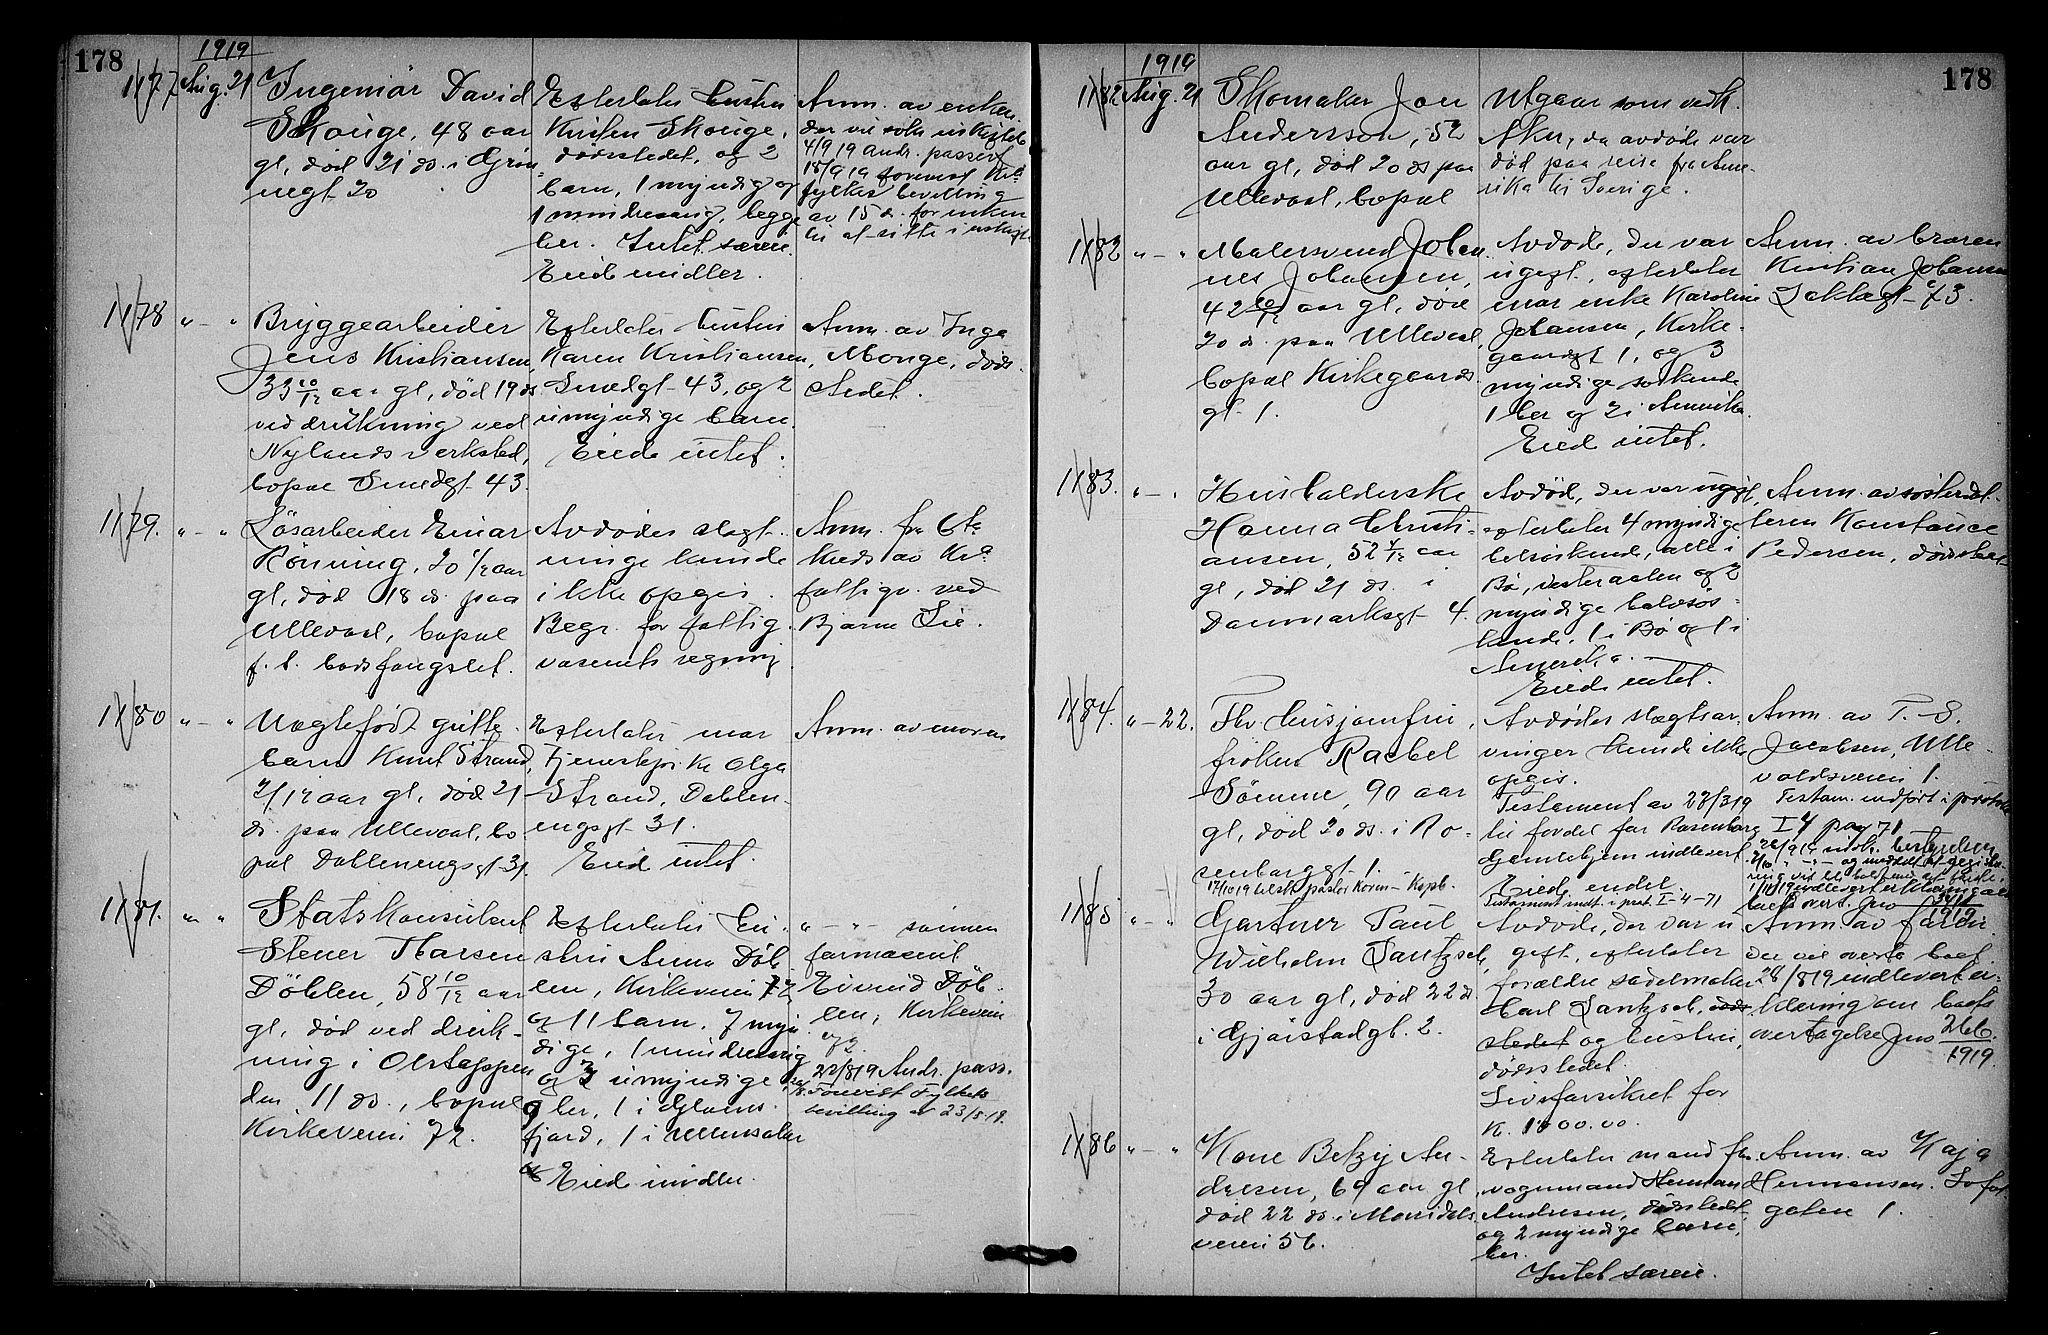 178
1919
1177 Aug. 21 Ingeniør David
Skouge, 48 aar
gl, død 21 ds. i Grøn
negt 20
Efterlater hustru
Kirsten Skouge,
dødsstedet, og 2
barn, 1 myndig og
1 mindreaarig, begge
her. Intet særeie.
Eied midler.
Anm. av enken
der vil søke uskiftebo
4/9 19 Andr. passert
18/9 19 forevist Kra
fylkes bevilling
av 15 ds. for enken
til at sitte i uskiftet
1178 " - " Bryggearbeider
Jens Kristiansen,
33 10/12 aar gl, død 19 ds
ved drukning ved
Nylands verksted,
bopæl Smedgt 43.
Efterlater hustru
Karen Kristiansen,
Smedgt 43, og 2
umyndige barn.
Eiede intet.
Anm. av Inga
Monge, døds
stedet.
1179. " - " Løsarbeider Einar
Rönning, 20 1/2 aar
gl, død 18 ds. paa
Ullevaal, bopæl
f. t. bodsfængslet.
Avdødes slegt-
ninge kunde
ikke opgis.
Begr. for fattig-
væsenets regning
Anm. fra
av Kra
fattigv. ved
Bjarne Lie.
1180 " - " Uegtefødt gutte-
barn Knut Strand,
2/12 aar gl, død 21
ds. paa Ullevaal, bo
pæl Dahlenengsgt 31.
Efterlater mor
Tjenestepike Olga
Strand, Dahlen-
engsgt 31.
Eied intet.
Anm. av moren
1181. " " Statskonsulent
Stener Larsen
Döhlen, 58 10/12 aar
gl, død ved druk-
ning i Olstappen
den 11 ds., bopæl
Kirkeveien 72.
Efterlater hu-
stru Anna Döh
len, Kirkeveien 72
og 11 barn, 7 myn
dige, 1 mindreaarig
og 3 umyndige,
9 her, 1 i
fjord, 1 i Ullensaker
Eied midler.
" - " sønnen
farmaceut
Eivind Döh-
len, Kirkeveien
72.
22/8 19 Andr. pass.
Forevist Fylkets
bevilling av 23/8 19.
178
1919
1182 Aug. 21 Skomaker Jon
Andersson, 52
aar gl, død 20 ds paa
Ullevaal, bopæl
Utgaar som vedk.
Aker, da avdøde var
død paa reise fra Ame-
rika til Sverige.
1182 " - " Malersvend Johan
nes Johansen,
42 10/12 aar gl, død
20 ds. paa Ullevaal,
bopæl Kirkegaards
gt 1.
Avdøde, der var
ugift, efterlater
mor enke Karoline
Johansen, Kirke-
gaardsgt 1, og 3
myndige søskende
1 her og 2 i Amerika.
Eied intet.
Anm. av broren
Kristian Johansen
73.
1183. " - " Husholderske
Hanna Christi-
ansen, 52 4/12 aar
gl, død 21 ds. i
Danmarksgt 4.
Avdød, der var ugift,
efterlater 4 myndige
helsøskende, alle i
Bø, Vesteraalen og 2
myndige halvsøs-
kende, 1 i Bø og 1 i
Amerika.
Eiede intet.
Anm. av søsterdat-
teren Konstance
Pedersen, dødsstedet
1184. " - 22. Fhv. husjomfru,
frøken Rachel
Sömme, 90 aar
gl, død 20 ds. i Ro-
senborggt 1.
17/10 19 tilsk. pastor Koren - Kopb.
Avdødes slægtsar-
vinger kunde ikke
opgis.
Testament av 23/3 19
til fordel for Rosenborg
Gamlehjem indlevert
Eiede endel.
Testament indf. i prot. I - 4 - 71
Anm. av T. S.
Jacobsen, Ulle-
valdsveien 1.
Testam. indført i protokol
I 4 pag 71
26/9 19 indk. bestyrelsen
1/10 19 indlevert erklæring om
boets overt. Jno 3411/1919
1185 " - " Gartner Paul
Wilhelm Lantzsch,
30 aar gl, død 22 ds.
i Gjøistadgt. 2.
Avdøde, der var u
gift, efterlater
forældre sadelmaker
Carl Lantzsch, døds
stedet og hustru,
dødsstedet.
Livsforsikret for
k. 1000.00.
Anm. av faren
der vil overta boet.
28/8 19 indlevert er-
klæring om boets
overtagelse Jno 266/1919.
1186 " - " Kone Betzy An-
dresen, 69 aar gl
død 22 ds. i Maridals
veien 56.
Efterlater mand fhv.
vognmand Herman
Andresen, dødsstedet
og 2 myndige barn,
her.
Intet særeie.
Anm. av Kaja
Hermansen, Sofies
gaten 1.